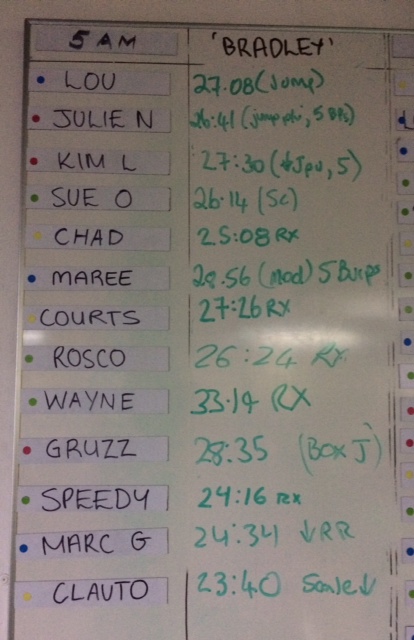 5 AM 'BRADLEY'
LOU 27.08 (Jump)
JULIE N 26:41 (jump, 5 BPs)
KIM L 27:30 5)
SUE O 26.14 (Sc)
CHAD 25:08 RX
MAREE 28.56 (mod) 5 Burps
COURTS 27:26 RX
ROSCO 26:24 RX
WAYNE 33:14 RX
GRUZZ 28:35 (BOX J)
SPEEDY 24:16 RX
MARC G 24:34 ↓RR
CLAUTO 23:40 Scale↓